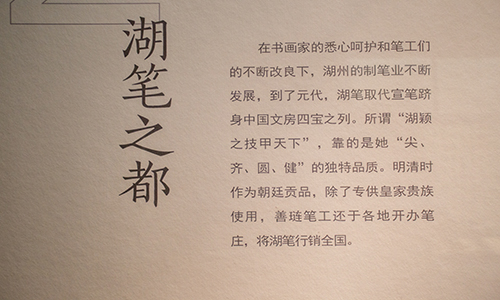 湖笔之都
在书画家的悉心呵护和笔工们
的不断改良下，湖州的制笔业不断
发展，到了元代，湖笔取代宣笔跻
身中国文房四宝之列。所谓“湖颖
之技甲天下”，靠的是她“尖、
齐、圆、健”的独特品质。明清时
作为朝廷贡品，除了专供皇家贵族
使用，善琏笔工还于各地开办笔
庄，将湖笔行销全国。